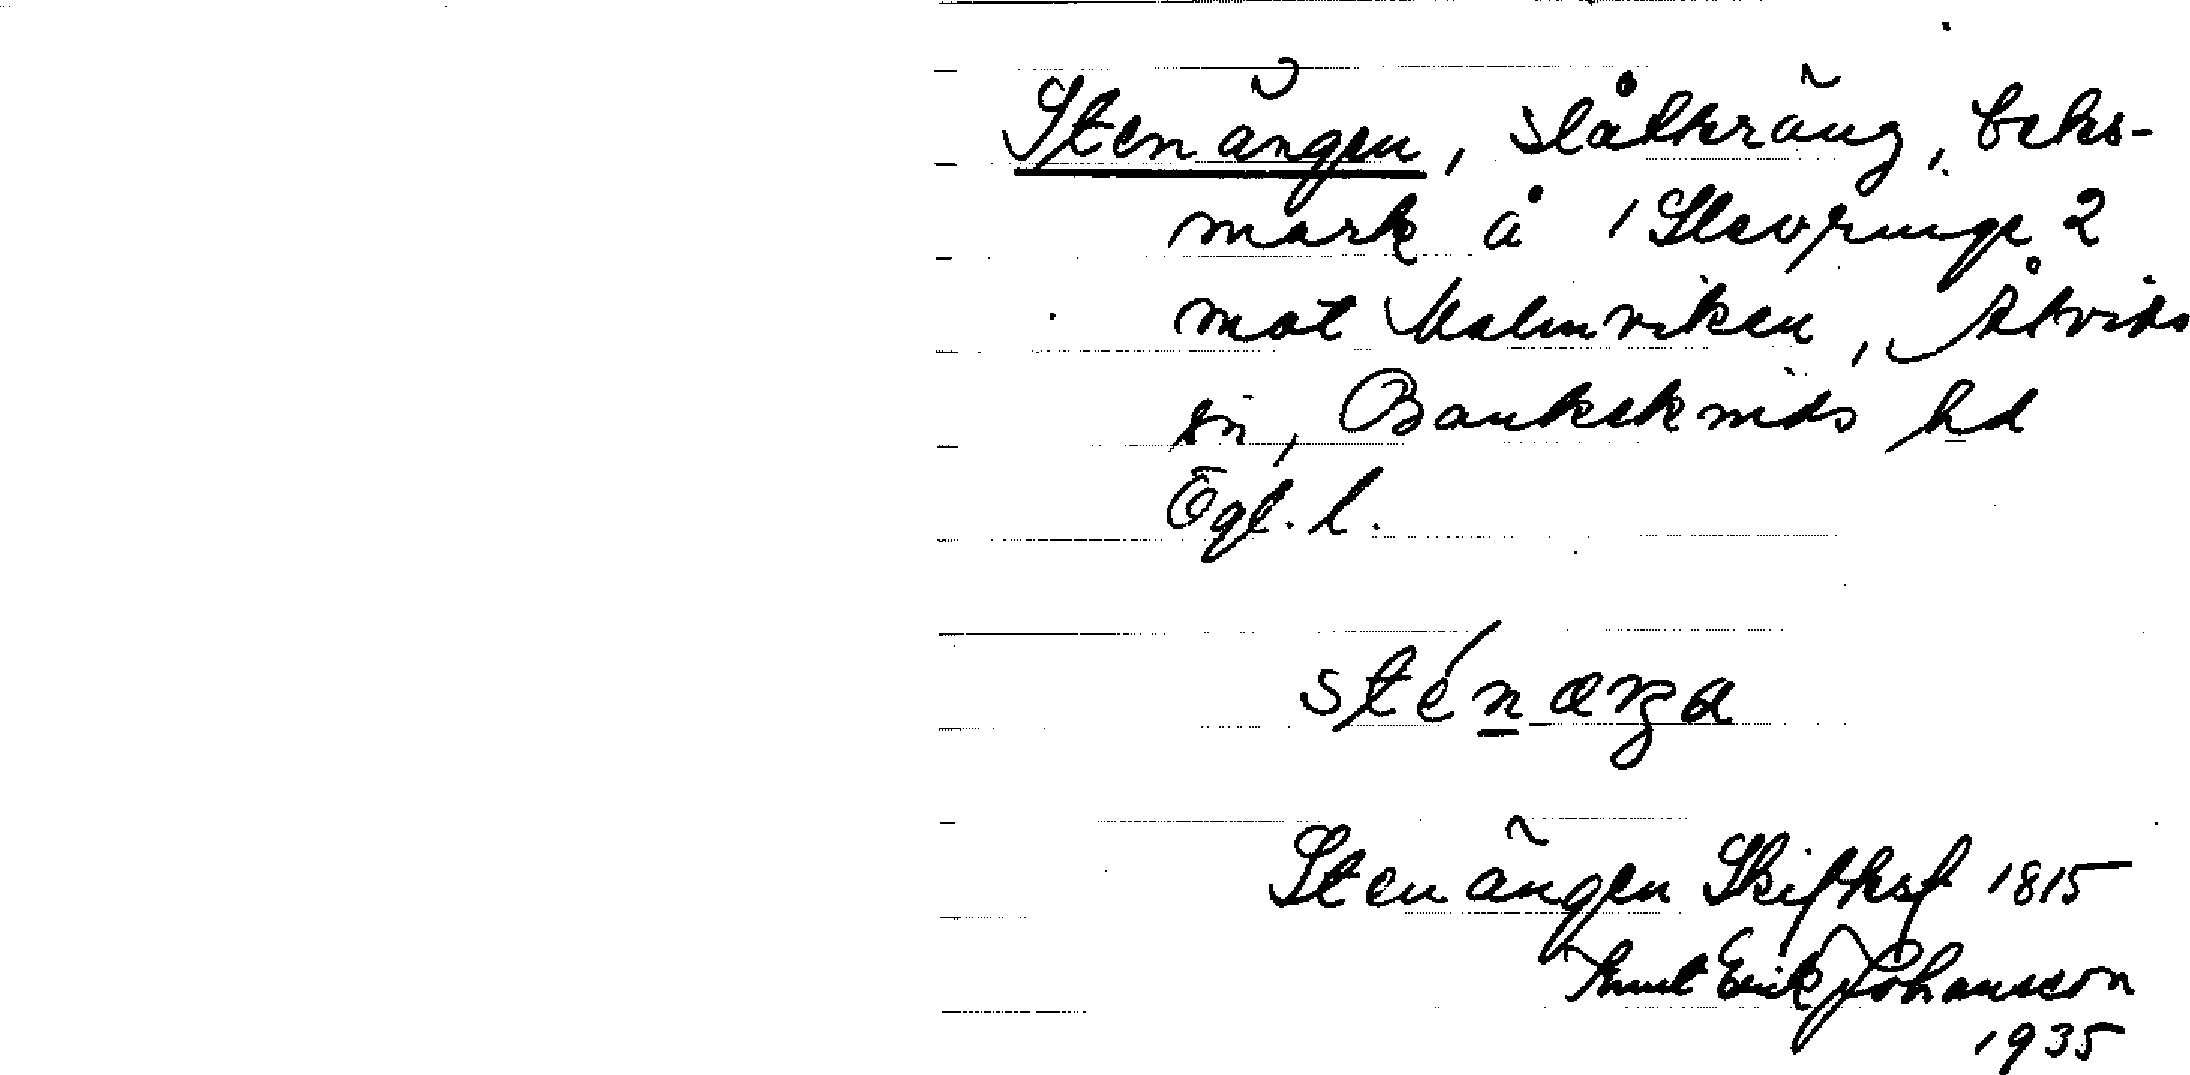 Stenängen, slåtteräng, bets-
mark å 1 Slevringe 2
mot Malmviken, Åtvids
sn, Bankekinds hd
Ögl. l.
sténæŋa
Stenängen Skifksf 1815
Knut Erik Johansson
1935